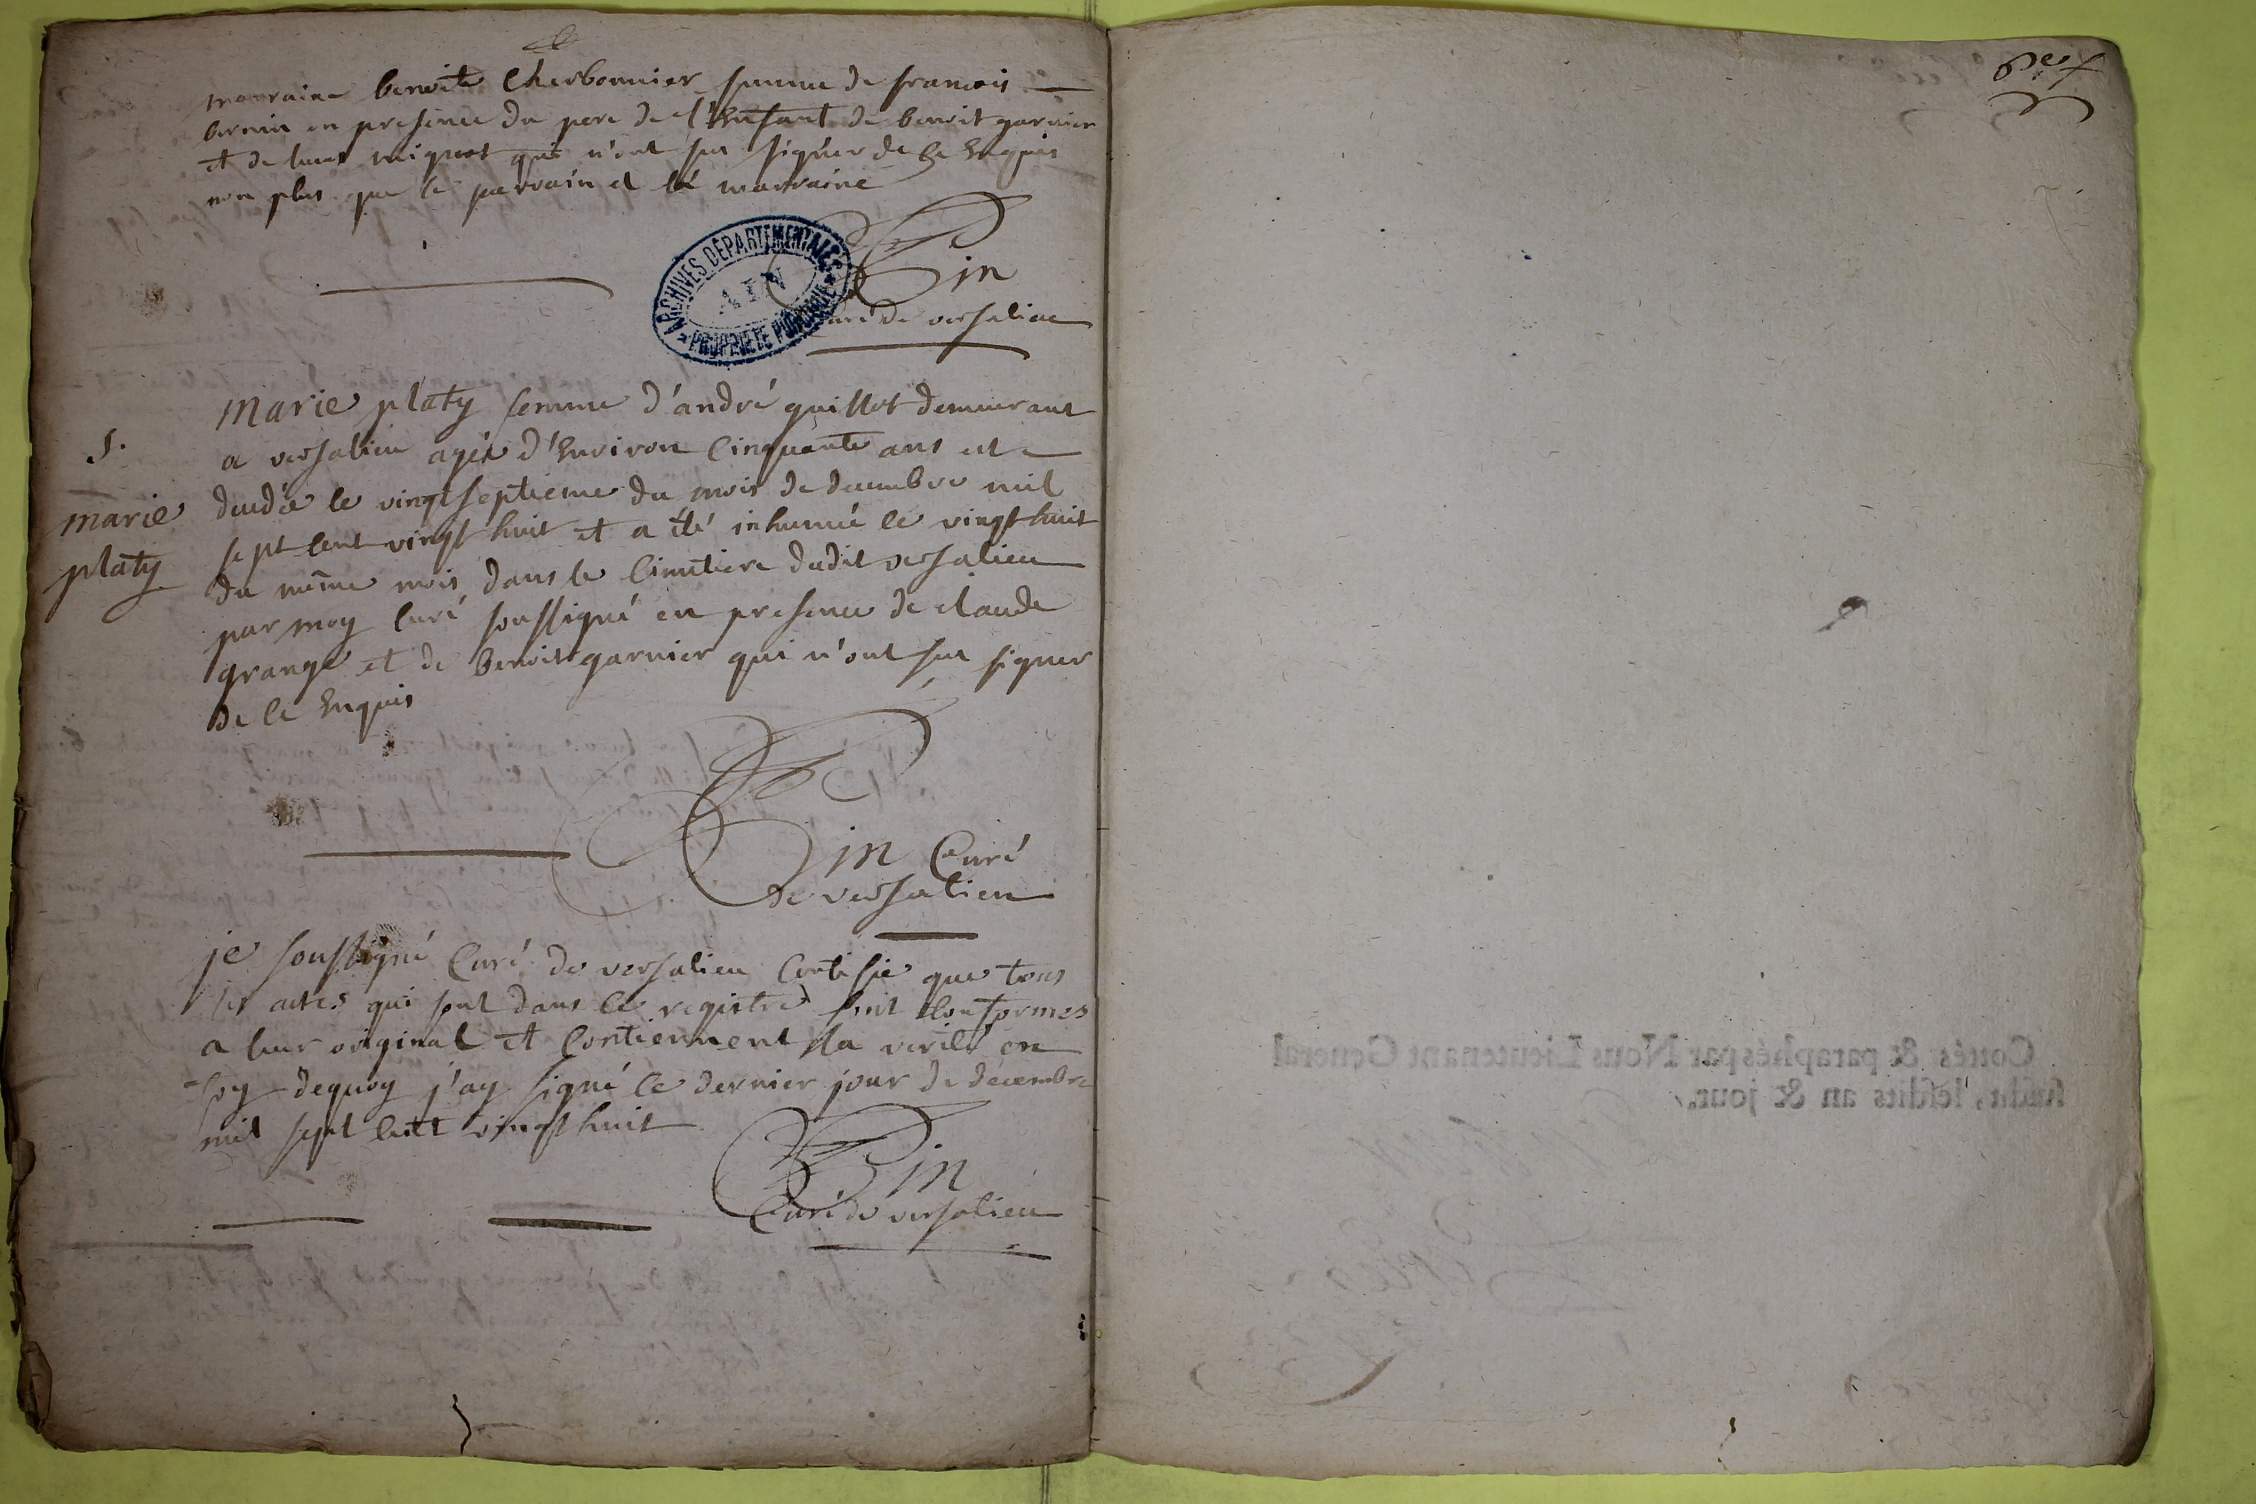 marraine benoite Cherbonnier femme de francois
bernin en presence du pere de l'Enfant de benoit garnier
et de luces mignot qui n'ont sçu signer de ce Enquis
non plus que le parrain et la marraine
ARCHIVES DÉPARTEMENTALES
AIN
PROPRIÉTÉ PUBLIQUE
curé de versalieu
5.
marie
platy
Marie platy femme d'andré quillot demeurant
a versalieu agée d'Environ Cinquante ans est
decedée le vingt septieme du mois de decembre mil
sept cent vingt huit et a été inhumée le vingt huit
du même mois dans le Cimetiere dudit versalieu
par moy Curé soussigné en presence de claude
grange et de benoit garnier qui n'ont sçu signer
de ce Enquis
Curé
de versalieu
je soussigné Curé de versalieu Certifie que tous
les actes qui sont dans ce registre sont Conformes
a leur original et Contiennent la verité en
foy dequoy j'ay signé ce dernier jour de décembre
mil sept cent vingt huit
Curé de versalieu
Cottés & paraphés par Nous Lieutenant General
susdit, lesdits an & jour.